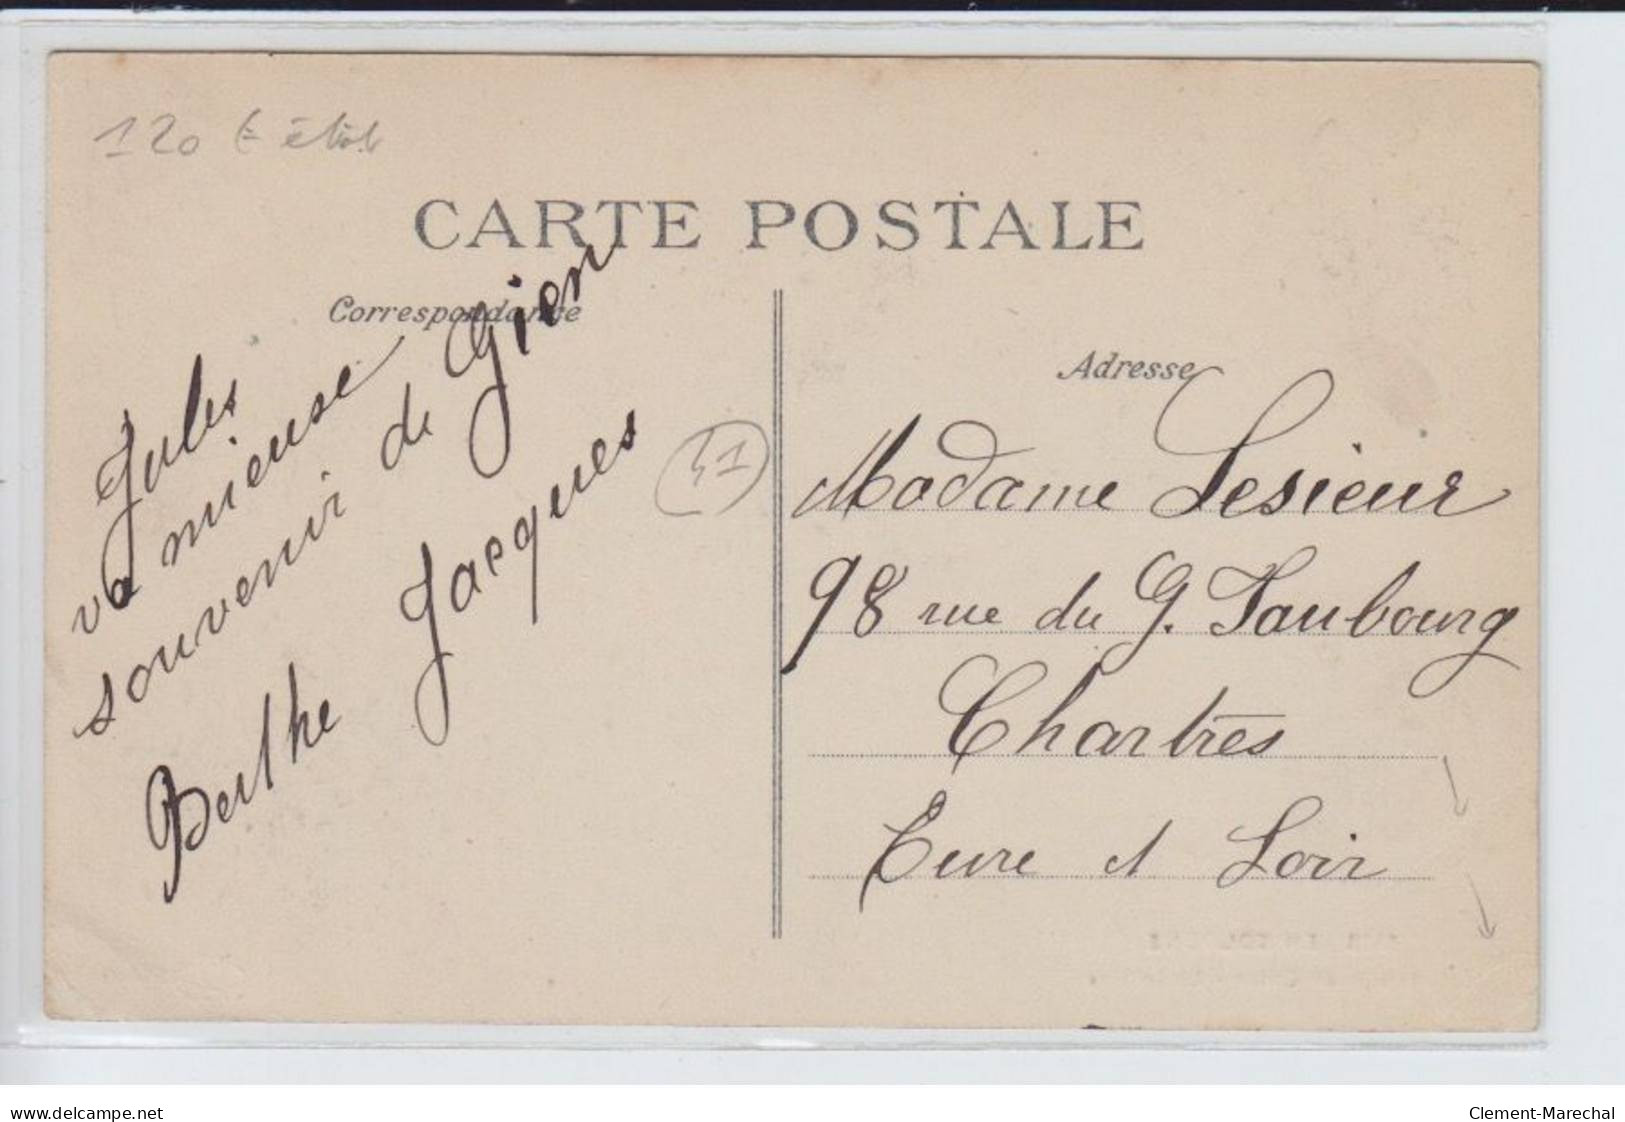 120 € état
CARTE POSTALE
Correspondance
Jules
va mieuse
souvenir de Gien
Berthe Jacques
41
Adresse
Madame Lesieur
98 rue du G. Faubourg
Chartres
Eure et Loir
www.delcampe.net
Clement-Marechal